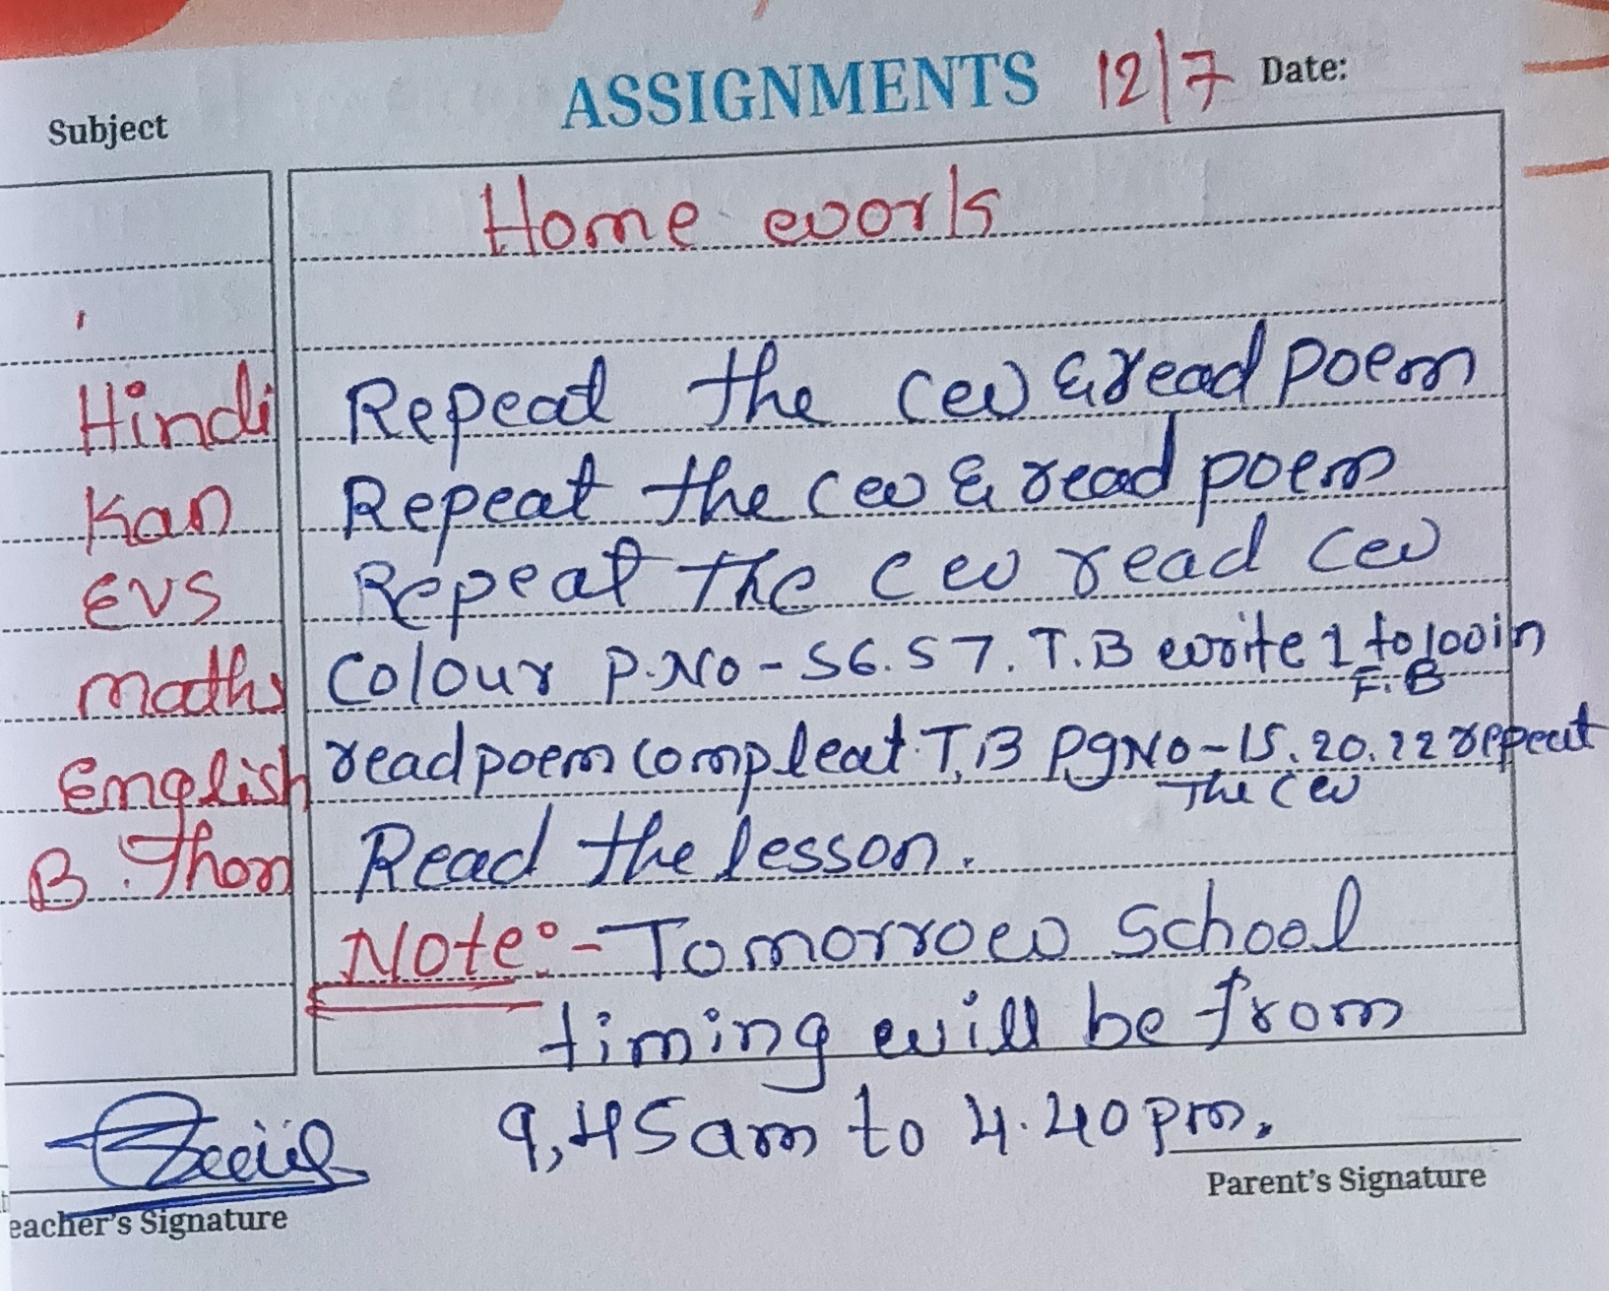 ASSIGNMENTS 12/7 Date:
Subject
Home work
Hindi Repeat the cw & read poem
Kan Repeat the cw & read poem
EVS Repeat the cw read cw
maths Colour P.No - 56.57. T.B write 1 to 100 in
F.B
English read poem compleat T.B PgNo - 15.20.22 repeat
The cw
B.Thon Read the lesson.
Note:- Tomorrow School
timing will be from
9,45am to 4.40pm.
Parent's Signature
eacher's Signature